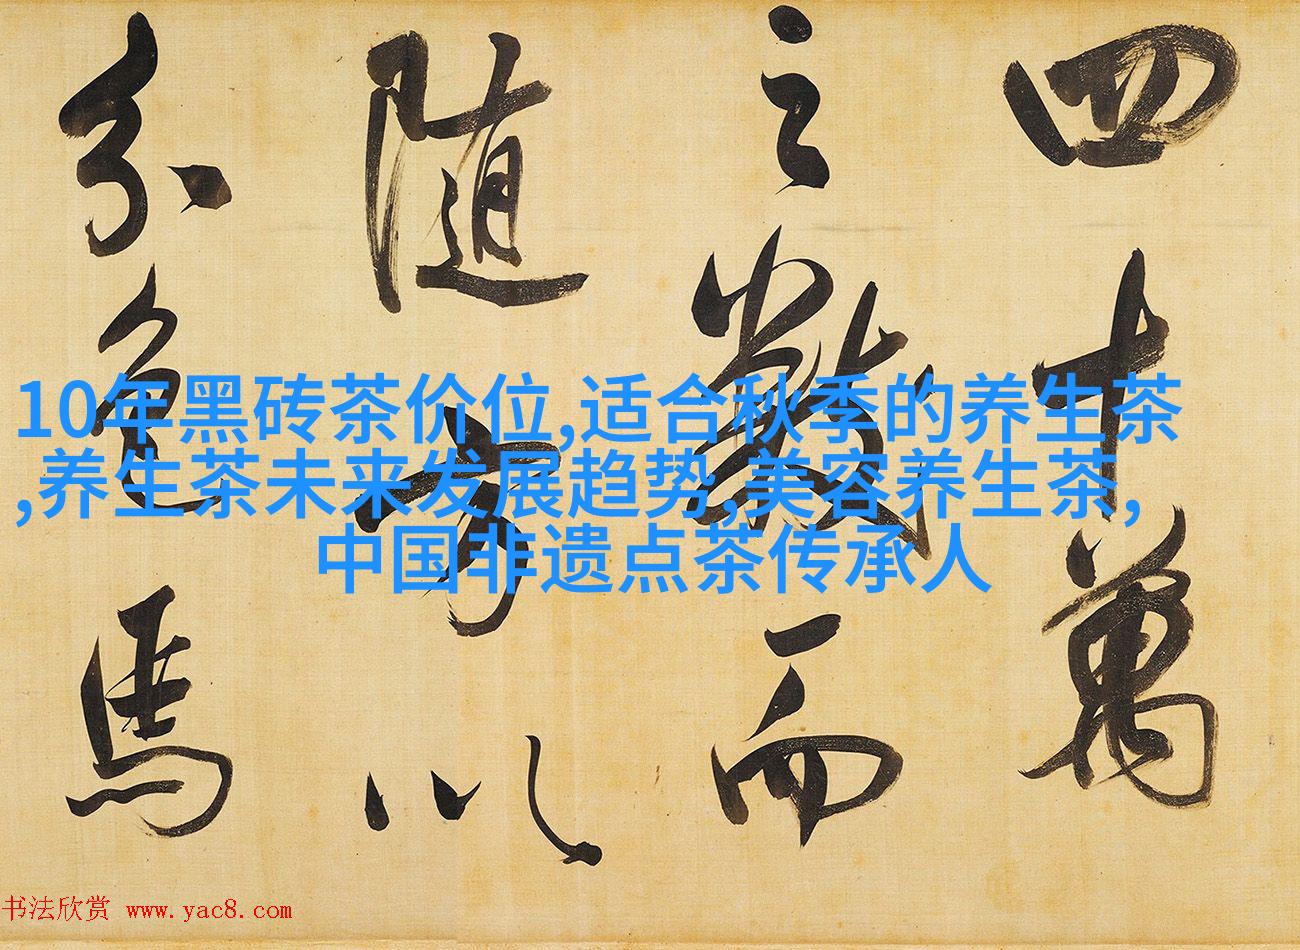 四十萬
之數而
隨方以
分色馬
10年黑砖茶价位,适合秋季的养生茶
,养生茶未来发展趋势,美容养生茶,
中国非遗点茶传承人
书法欣赏 www.yac8.com